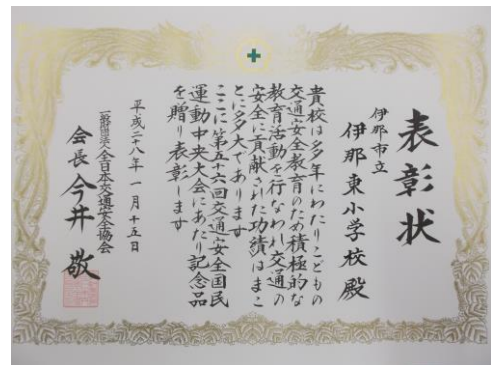 表彰状
伊那市立
伊那東小学校殿
貴校は多年にわたりこどもの
交通安全教育のため積極的な
教育活動を行なわれ交通の
安全に貢献された功績はまこ
とに多大であります
ここに第五十六回交通安全国民
運動中央大会にあたり記念品
を贈り表彰します
平成二十八年一月十五日
一般財団法人全日本交通安全協会
会長今井敬